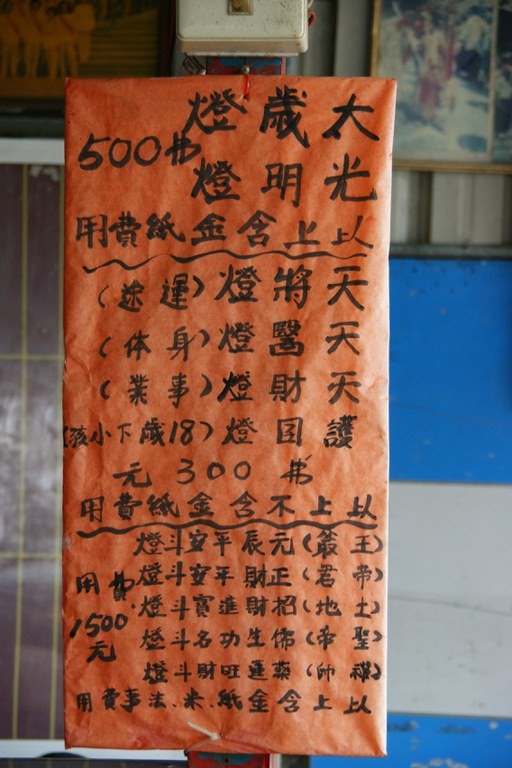 太歲燈
光明燈
500
以上含金紙費用
天將燈(運途)
天醫燈(身体)
天財燈(事業)
護囝燈(18歲下小孩)
300 元
以上不含金紙費用
(王爺)元辰平安斗燈
(帝君)正財平安斗燈
(土地)招財進寶斗燈
(聖帝)佈生功名斗燈
(禪師)旺財斗燈
費用
1500
元
以上含金紙.米.法事費用